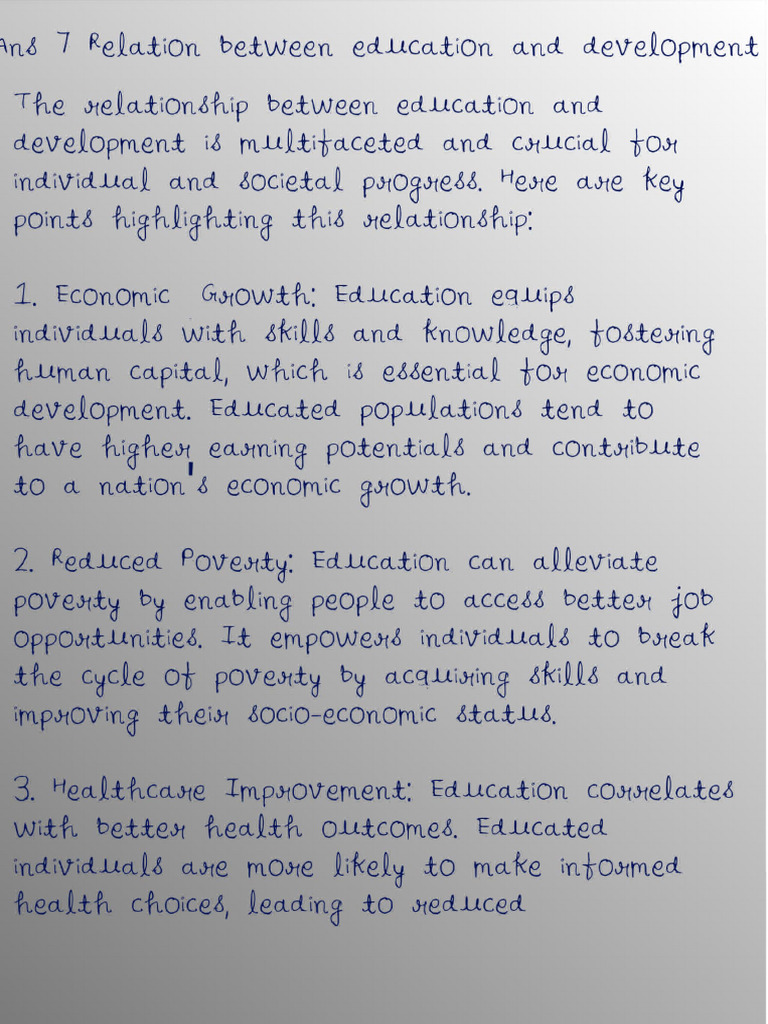 Ans 7 Relation between education and development
The relationship between education and
development is multifaceted and crucial for
individual and societal progress. Here are key
points highlighting this relationship:
1. Economic Growth: Education equips
individuals with skills and knowledge, fostering
human capital, which is essential for economic
development. Educated populations tend to
have higher earning potentials and contribute
to a nation's economic growth.
2. Reduced Poverty: Education can alleviate
poverty by enabling people to access better job
opportunities. It empowers individuals to break
the cycle of poverty by acquiring skills and
improving their socio-economic status.
3. Healthcare Improvement: Education correlates
with better health outcomes. Educated
individuals are more likely to make informed
health choices, leading to reduced